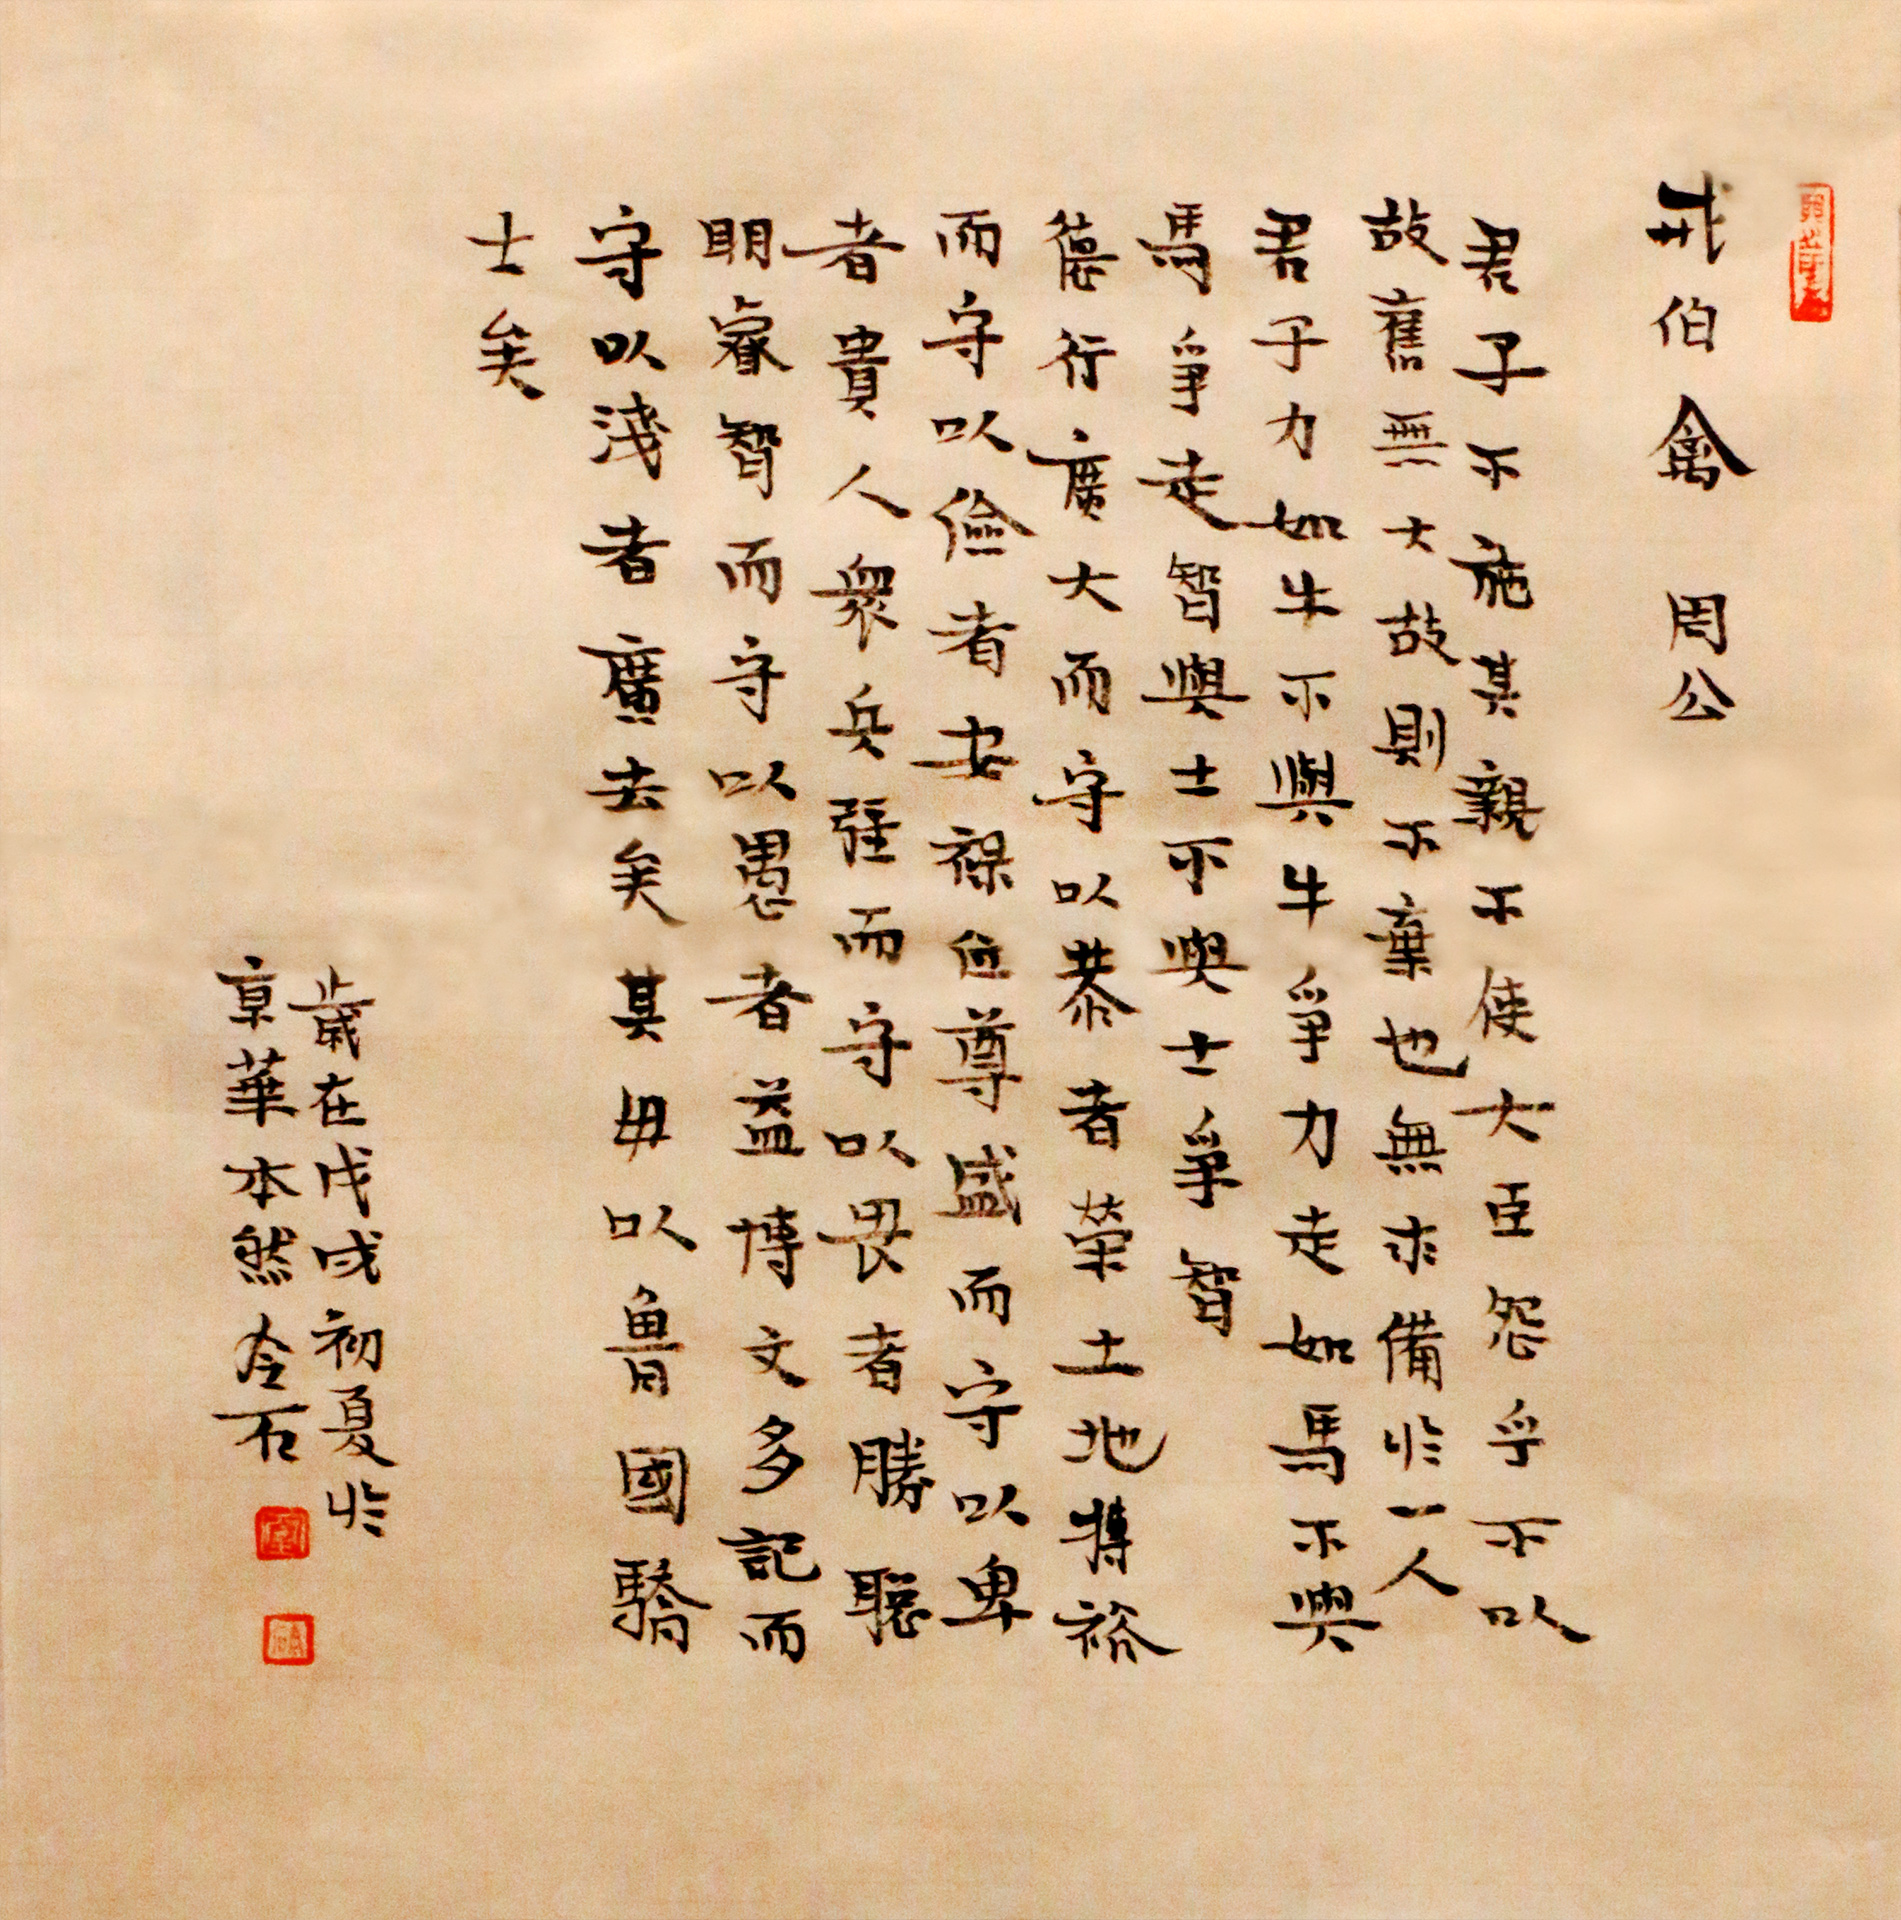 戒伯禽 周公
君子不施其親不使大臣怨乎不以
故舊無大故則不棄也無求備於一人
君子力如牛不與牛爭力走如馬不與
馬爭走智與士不與士爭智
德行廣大而守以恭者榮土地博裕
而守以儉者安祿位尊盛而守以卑
者貴人衆兵强而守以畏者勝聰
明睿智而守以愚者益博文多記而
守以淺者廣去矣其毋以魯國驕
士矣
歲在戊戌初夏於
京華本然冷石